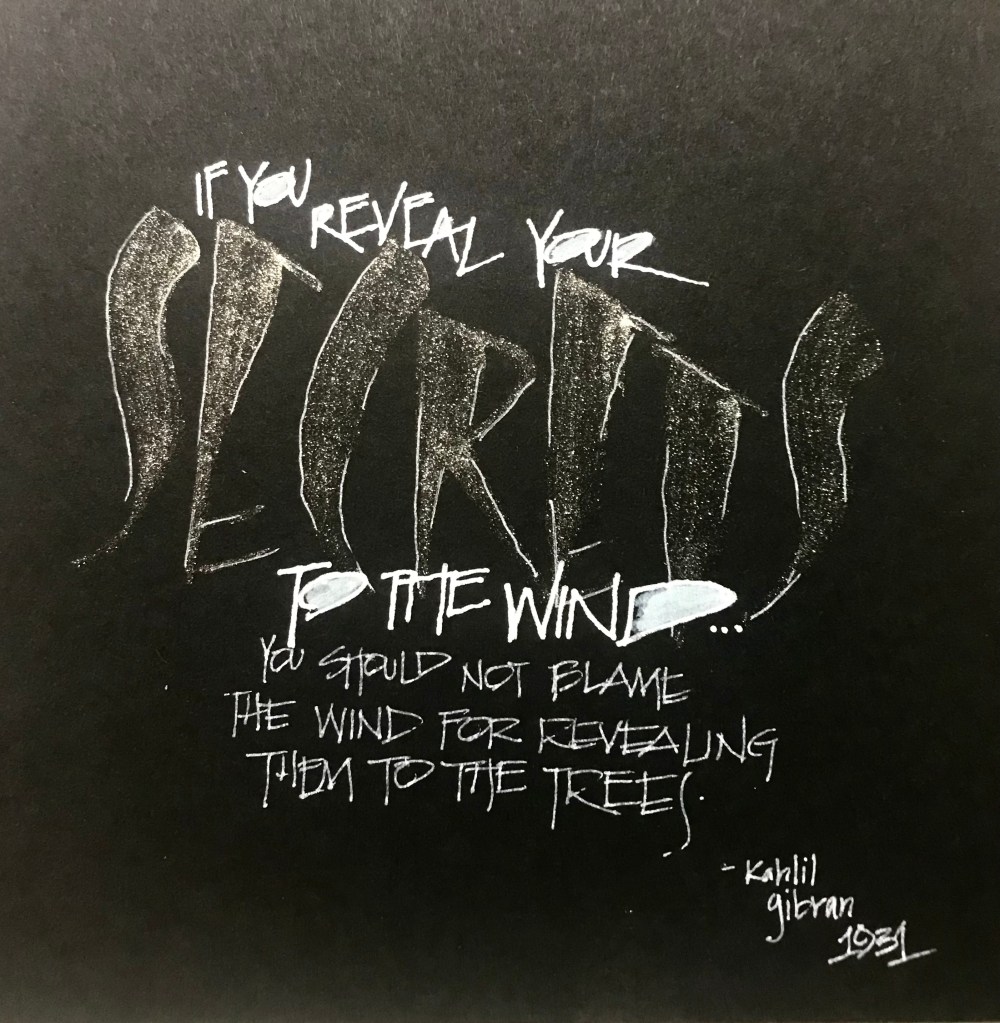 IF YOU REVEAL YOUR
SECRETS
TO THE WIND...
YOU SHOULD NOT BLAME
THE WIND FOR REVEALING
THEM TO THE TREES.
- Kahlil
gibran
1931